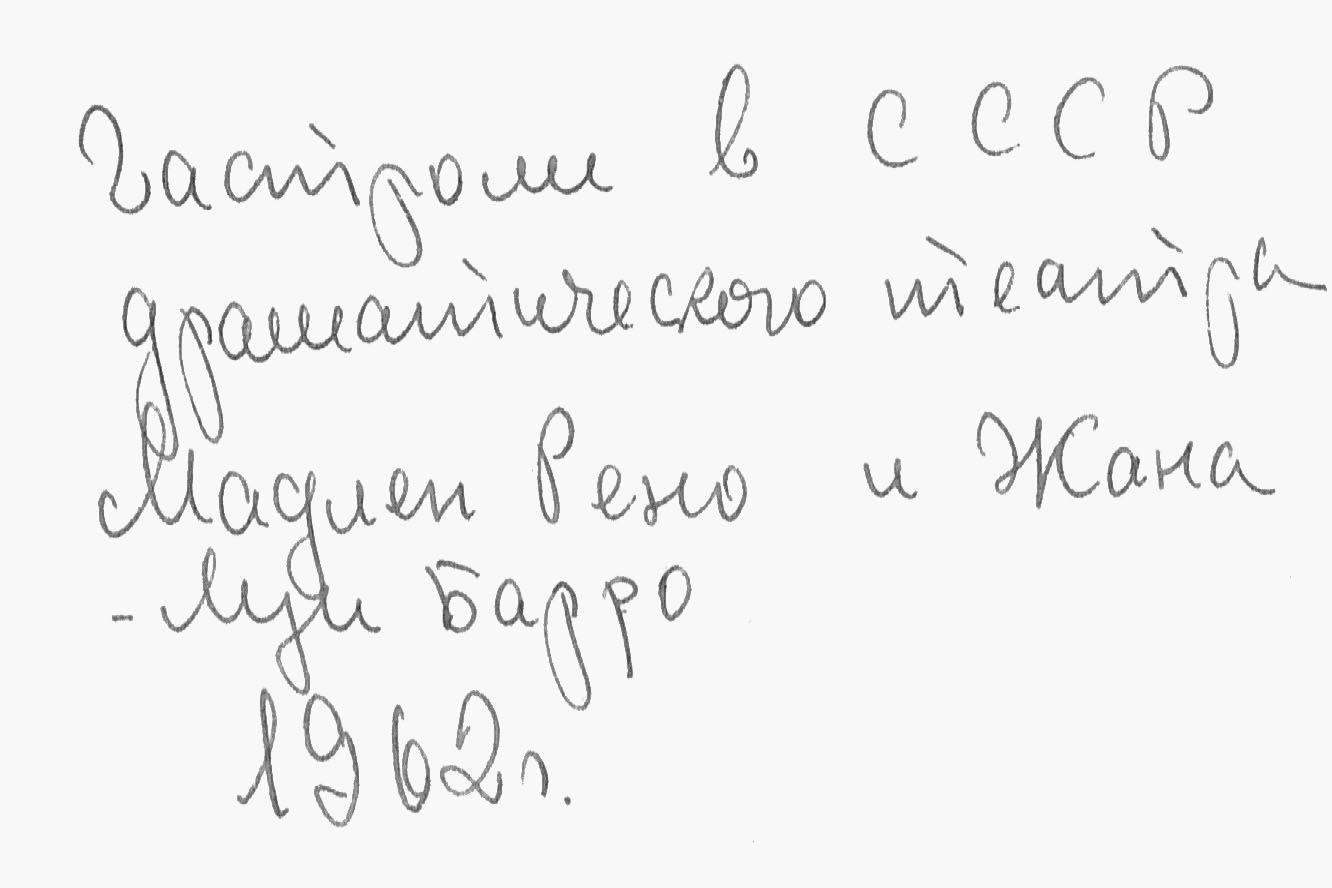 Гастроли в СССР
драматического театра
Мадлен Рено и Жана
- Луи Барро
1962г.